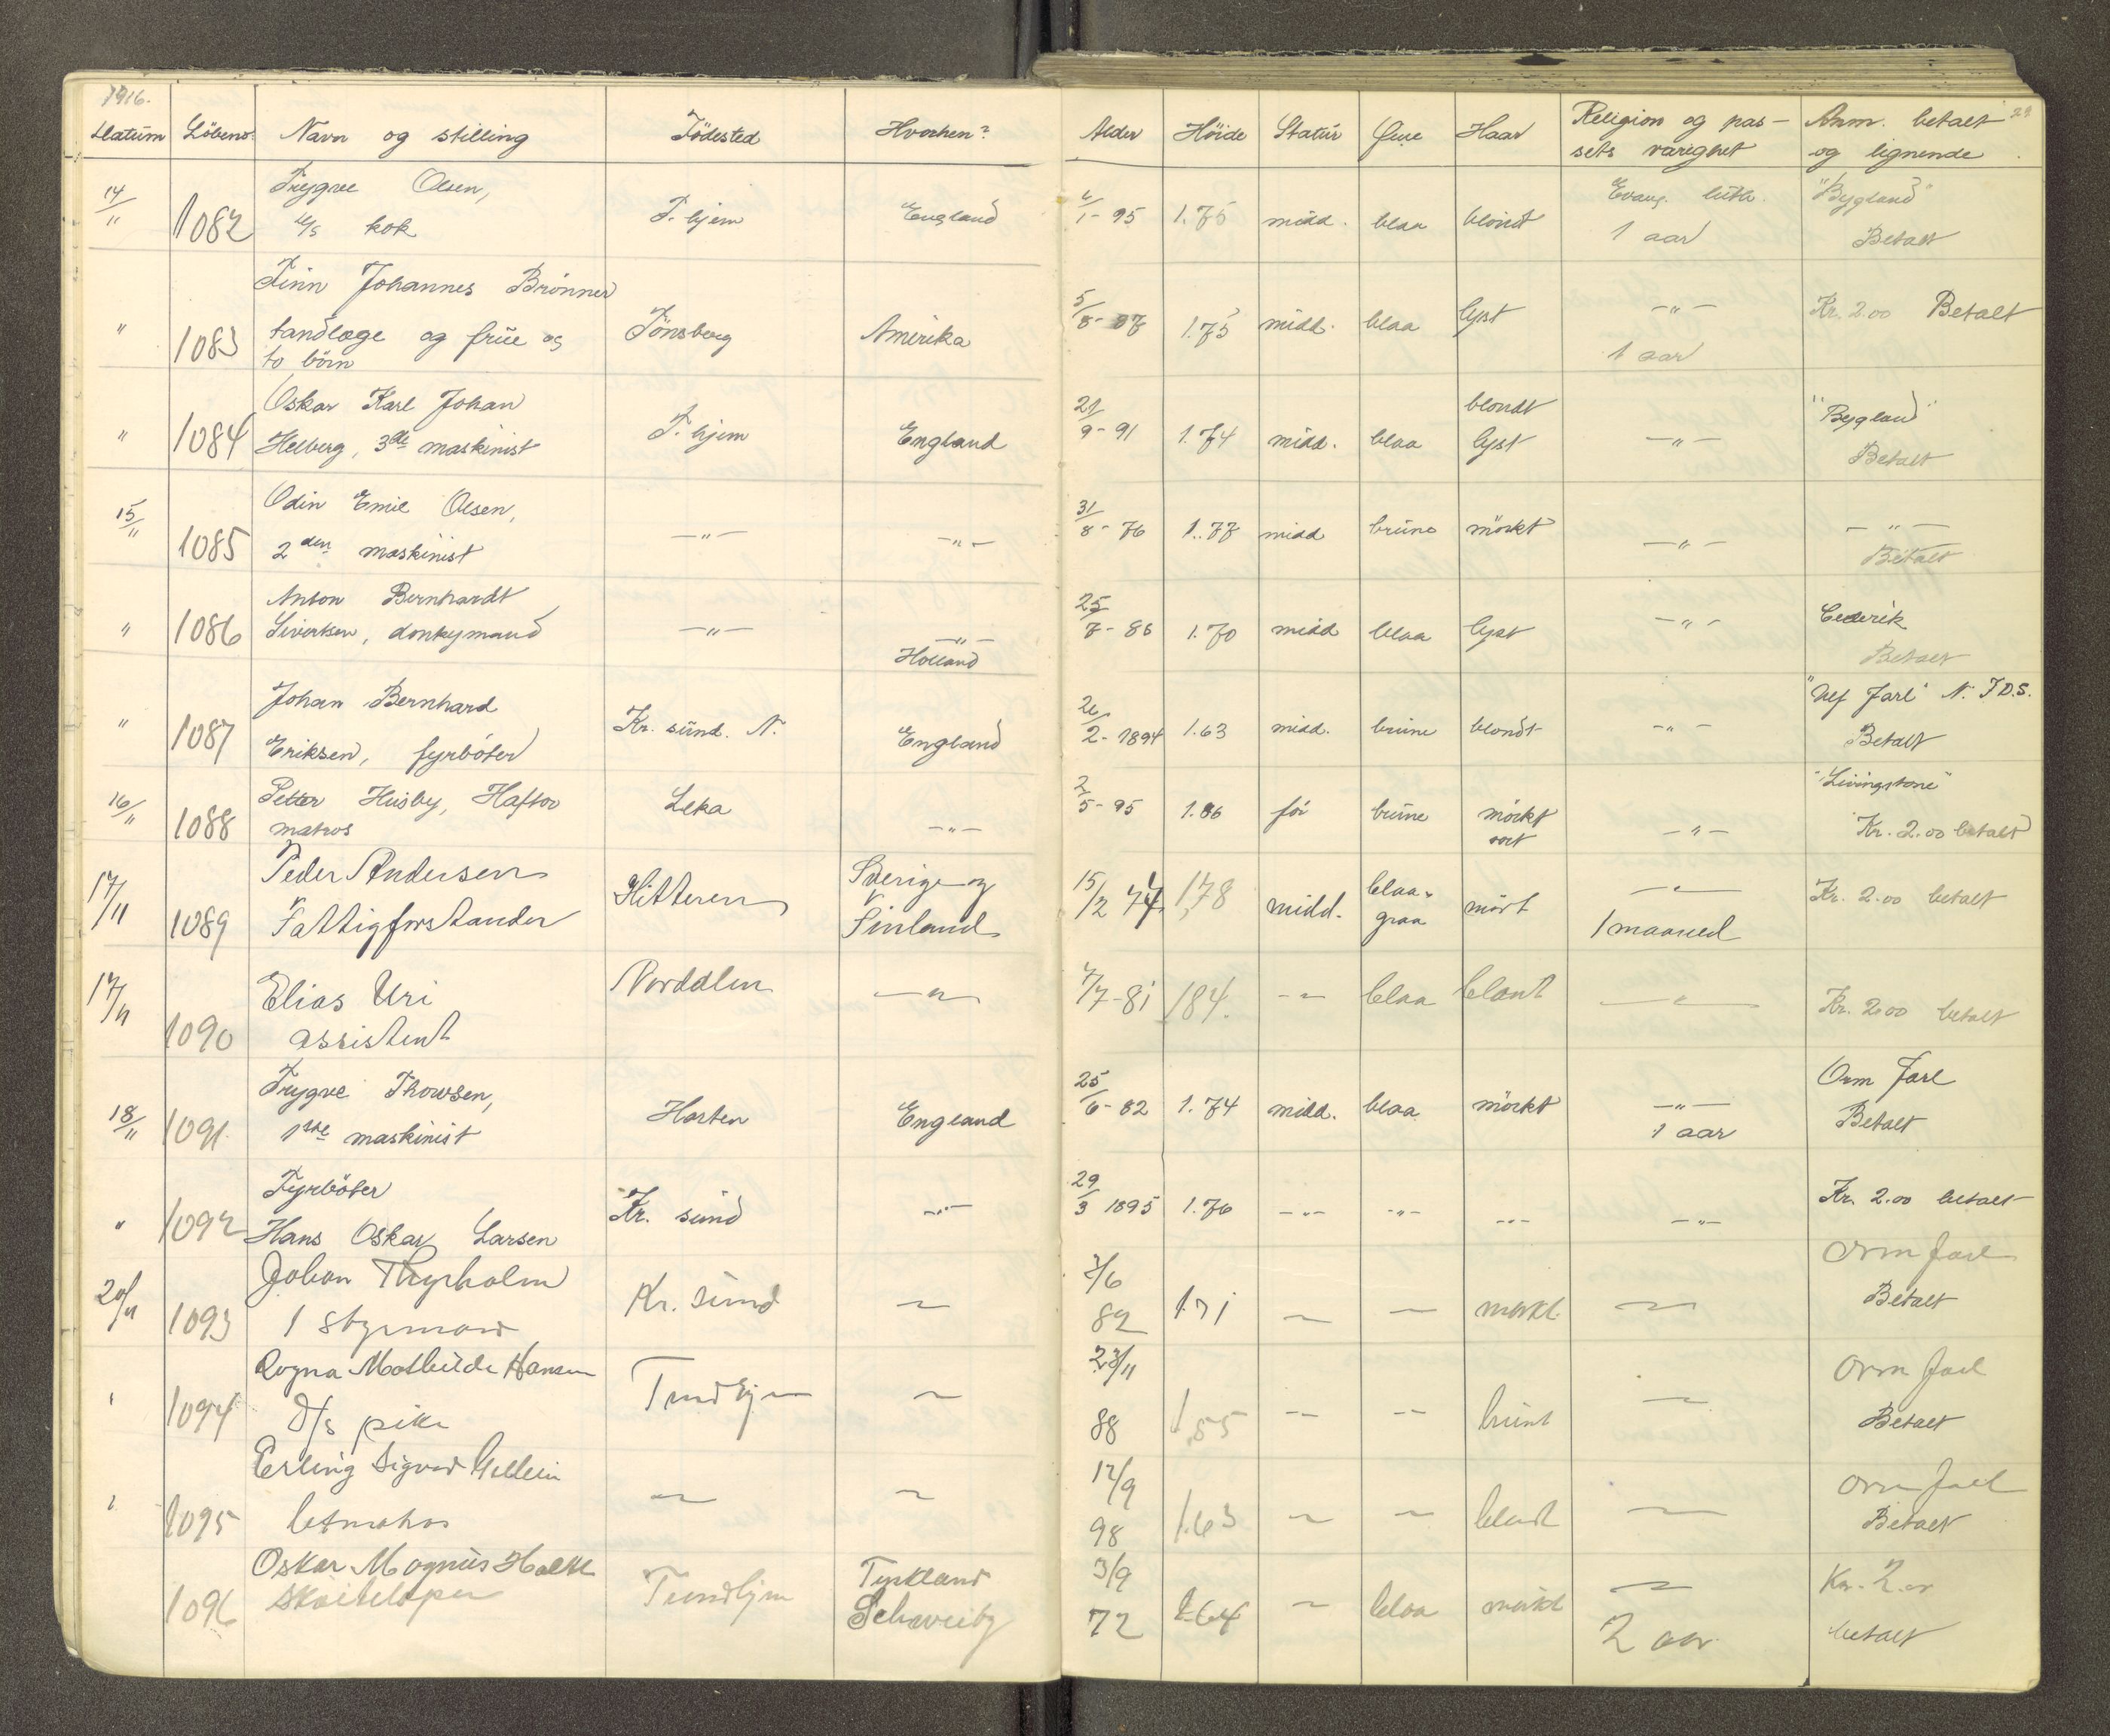 1916.
Datum Löbeno. Navn og stilling Födested Hvorhen? Alder Höide Statur Öine Haar Religion og pas- Anm. betalt
sets varighet og lignende
14/11 1082 Trygve Olsen, T.hjem England 4/1-95 1.75 midd. blaa blondt Evang. luth. "Bygland"
d/s kok 1 aar Betalt
Finn Johannes Brönner
" 1083 tandlæge og frue og Tönsberg Amerika 5/8-87 1.75 midd. blaa lyst -"- Kr. 2.00 Betalt
to börn 1 aar
Oskar Karl Johan blondt "Bygland"
" 1084 Helberg, 3die maskinist T.hjem England 21/9-91 1.74 midd. blaa lyst -"- Betalt
15/11 Odin Emil Olsen,
1085 2den maskinist -"- -"- 31/8-76 1.77 midd brune mörkt -"- -"-
Betalt
Anton Bernhardt
" 1086 Sivertsen, donkymand -"- -"- 25/7-86 1.70 midd blaa lyst -"- Cederik
Holland Betalt
Johan Bernhard "Ulf Jarl" N.F.D.S.
" 1087 Eriksen, fyrböter Kr. sund. N. England 26/2-1894 1.63 midd. brune blondt -"- Betalt
16/11 Petter Husby, Haftor Leka "Livingstone"
1088 matros -"- 2/5-95 1.86 för brune mörkt -"- Kr. 2.00 betalt
sort
17/11 Peder Andersen Hitteren Sverige og 15/2 74 1,78 midd. blaa- mört -"- Kr. 2.00 betalt
1089 Fattigforstander Finland graa 1 maaned
17/11 Elias Uri Norddalen -"- 4/7-81 184. -"- blaa blont -"- Kr. 2.00 betalt
1090 assistent
Trygve Thowsen, Orm Jarl
18/11 1091 1ste maskinist Horten England 25/6-82 1.74 midd. blaa mörkt -"- Betalt
1 aar
Fyrböter Kr. 2.00 betalt
" 1092 Hans Oskar Larsen Kr. sund -"- 29/3 1895 1.76 -"- -"- -"- -"-
Johan Thyrholm Orm Jarl
20/11 1093 1 styrmand Kr. sund -"- 2/6 82 1.71 -"- -"- mörkt -"- Betalt
Ragna Mathilde Hansen Orm Jarl
" 1094 d/s pike Trondhjem -"- 23/11 88 1,55 -"- -"- brunt -"- Betalt
Erling Sigurd Gellein Orm Jarl
" 1095 letmatros -"- -"- 12/9 98 1.63 -"- -"- blont -"- Betalt
Oskar Magnus Tyskland 3/9 -"- Kr. 2.00
1096 Trondhjem 72 1.64 -"- blaa mörkt 2 aar betalt